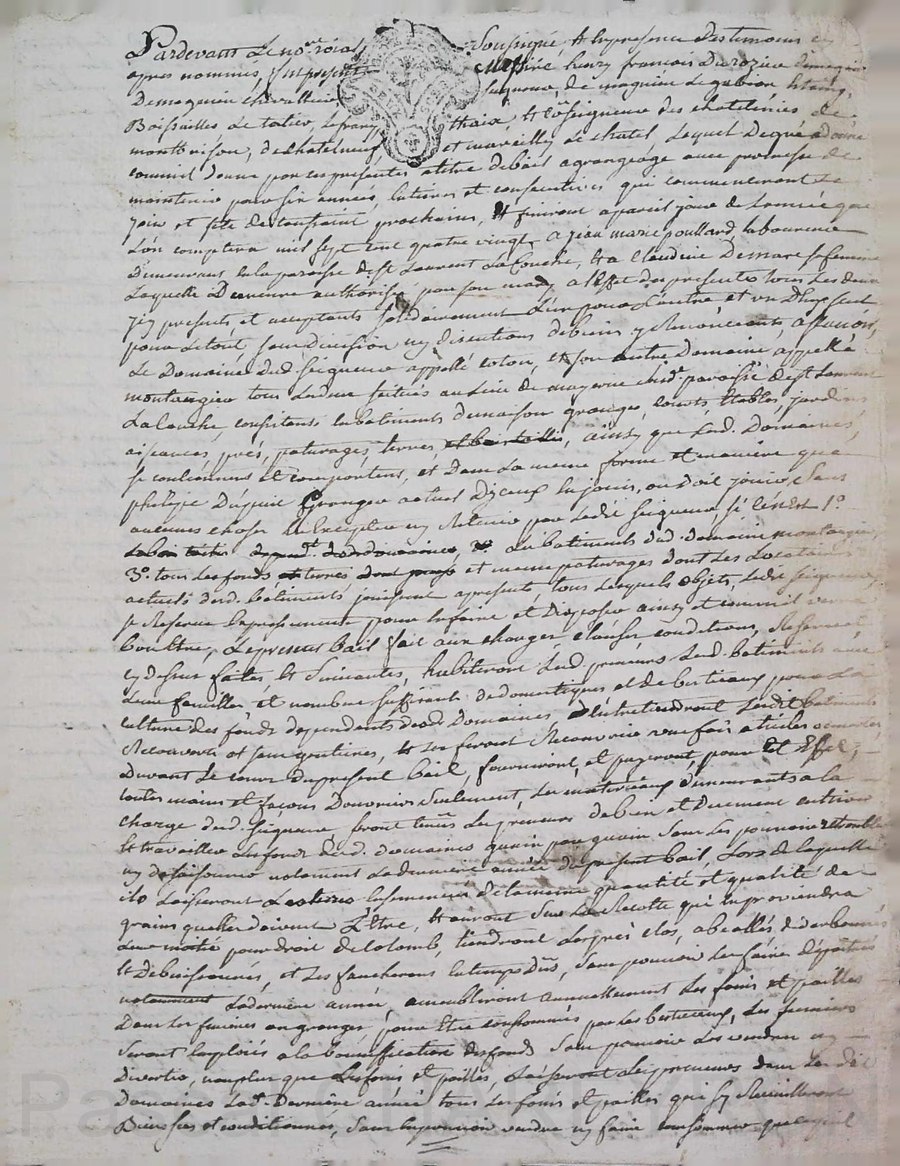 Pardevant Le no.re roial Soussigné & en presence des temoins cy
apres nommés, fut present Messire henry francois Durozier
Demagnieu chevallier seigneur de magnieu Le gabion
Boissailles De tatier, Lefranc & Seigneur des chatelenies de
montbrison, de chatelneuf et mareilly Le chatel, Lequel De gré a donné
comme il donne par ces presentes a titre de bail a grangeage avec promesse de
maintenir pour six années, entieres et consecutives qui commenceront Le
Jour et fête de toussaint prochains, & finiront a pareil jour de Lannée que
L'on comptera mil sept cent quatre vingt, a Jean marie goullard, laboureur
demeurant en la paroisse de St Laurent La Couche, & a Claudine Demare sa femme
Laquelle Demeure authorisée par son mary a l'effet des presentes tous Les deux
Icy presents, et acceptants solidairement L'un pour L'autre et un D'eux seul
pour Le tout, sans division ny discution de biens y Renonceants, assavoir,
Le Domaine dud. seigneur appellé coton, et son autre Domaine appellé
montangier tous Les deux scitués au Lieu de mayerne susd. paroisse de St Laurent
La couche, consistants en batiments de maison, granges, courts, Etables, jardins
aisances, prés, paturages, terres, et bois taillis, ainsy que Lesd. Domaines,
se contiennent et comportent, et dans La meme forme et maniere que
philippe Dupuis Granger actuel D'iceux en jouit, ou doit jouir, sans
aucunes choses En Excepter ny Retenir par Ledit seigneur, si ce n'est 1.o
Les bois taillis dependt. desd. domaines, 2.o Les batiments dud. domaine montangier,
3.o tous Les fonds et terres et meme paturages dont Les Locataires
actuels desd. batiments jouissent apresent, tous Lesquels objets, Ledit seigneur
se Reserve Expressement pour en faire et Disposer ainsy et comme il
voudra, Le present bail fait aux charges, clauses conditions, Reserves
cy dessus faites, et suivantes, habiteront Lesd. preneurs Lesd. batiments avec
Leur famille et nombre suffisant de domestiques et de bestiaux pour La
culture des fonds dependents desd. Domaines, & entretiendront Lesdits batiments
Recouverts et sans goutieres, & Les feront Recouvrir une fois a tuiles
Durant Le cours du present bail, fourniront, et payeront, pour cet Effet,
toutes mains et façons D'ouvriers seulement, Les materiaux demeurants a la
charge dud. seigneur, seront tenus Les preneurs de bien et Duement cultiver
& travailler Les fonds desd. domaines quoin par quoin sans Les pouvoir
ny desaisonner notament La derniere année du present bail, Lors de laquelle
ils Laisseront Les terres ensemencées de la meme quantité et qualité de
grains qu'elles doivent L'être, & auront sur La Recolte qui en proviendra
Leur moitié pour droit de colomb, tiendront Les prés clos,
& De buissonnés, et Les faucheront en temps dûs, sans pouvoir Les faire dépaître
notamment La derniere année, assembleront annuellement Les foins et pailles
Dans Les fenieres ou granges, pour être consommés par Les bestiaux, Les fumiers
seront Employés a la bonnification des fonds sans pouvoir Les vendre ny
divertir, non plus que Les foins et pailles, Laisseront Les preneurs dans Les dits
Domaines Lad. Derniere année tous Les foins et pailles qui s'y Recueilleront
Bien secs et conditionnés, sans en pouvoir vendre ny faire consommer